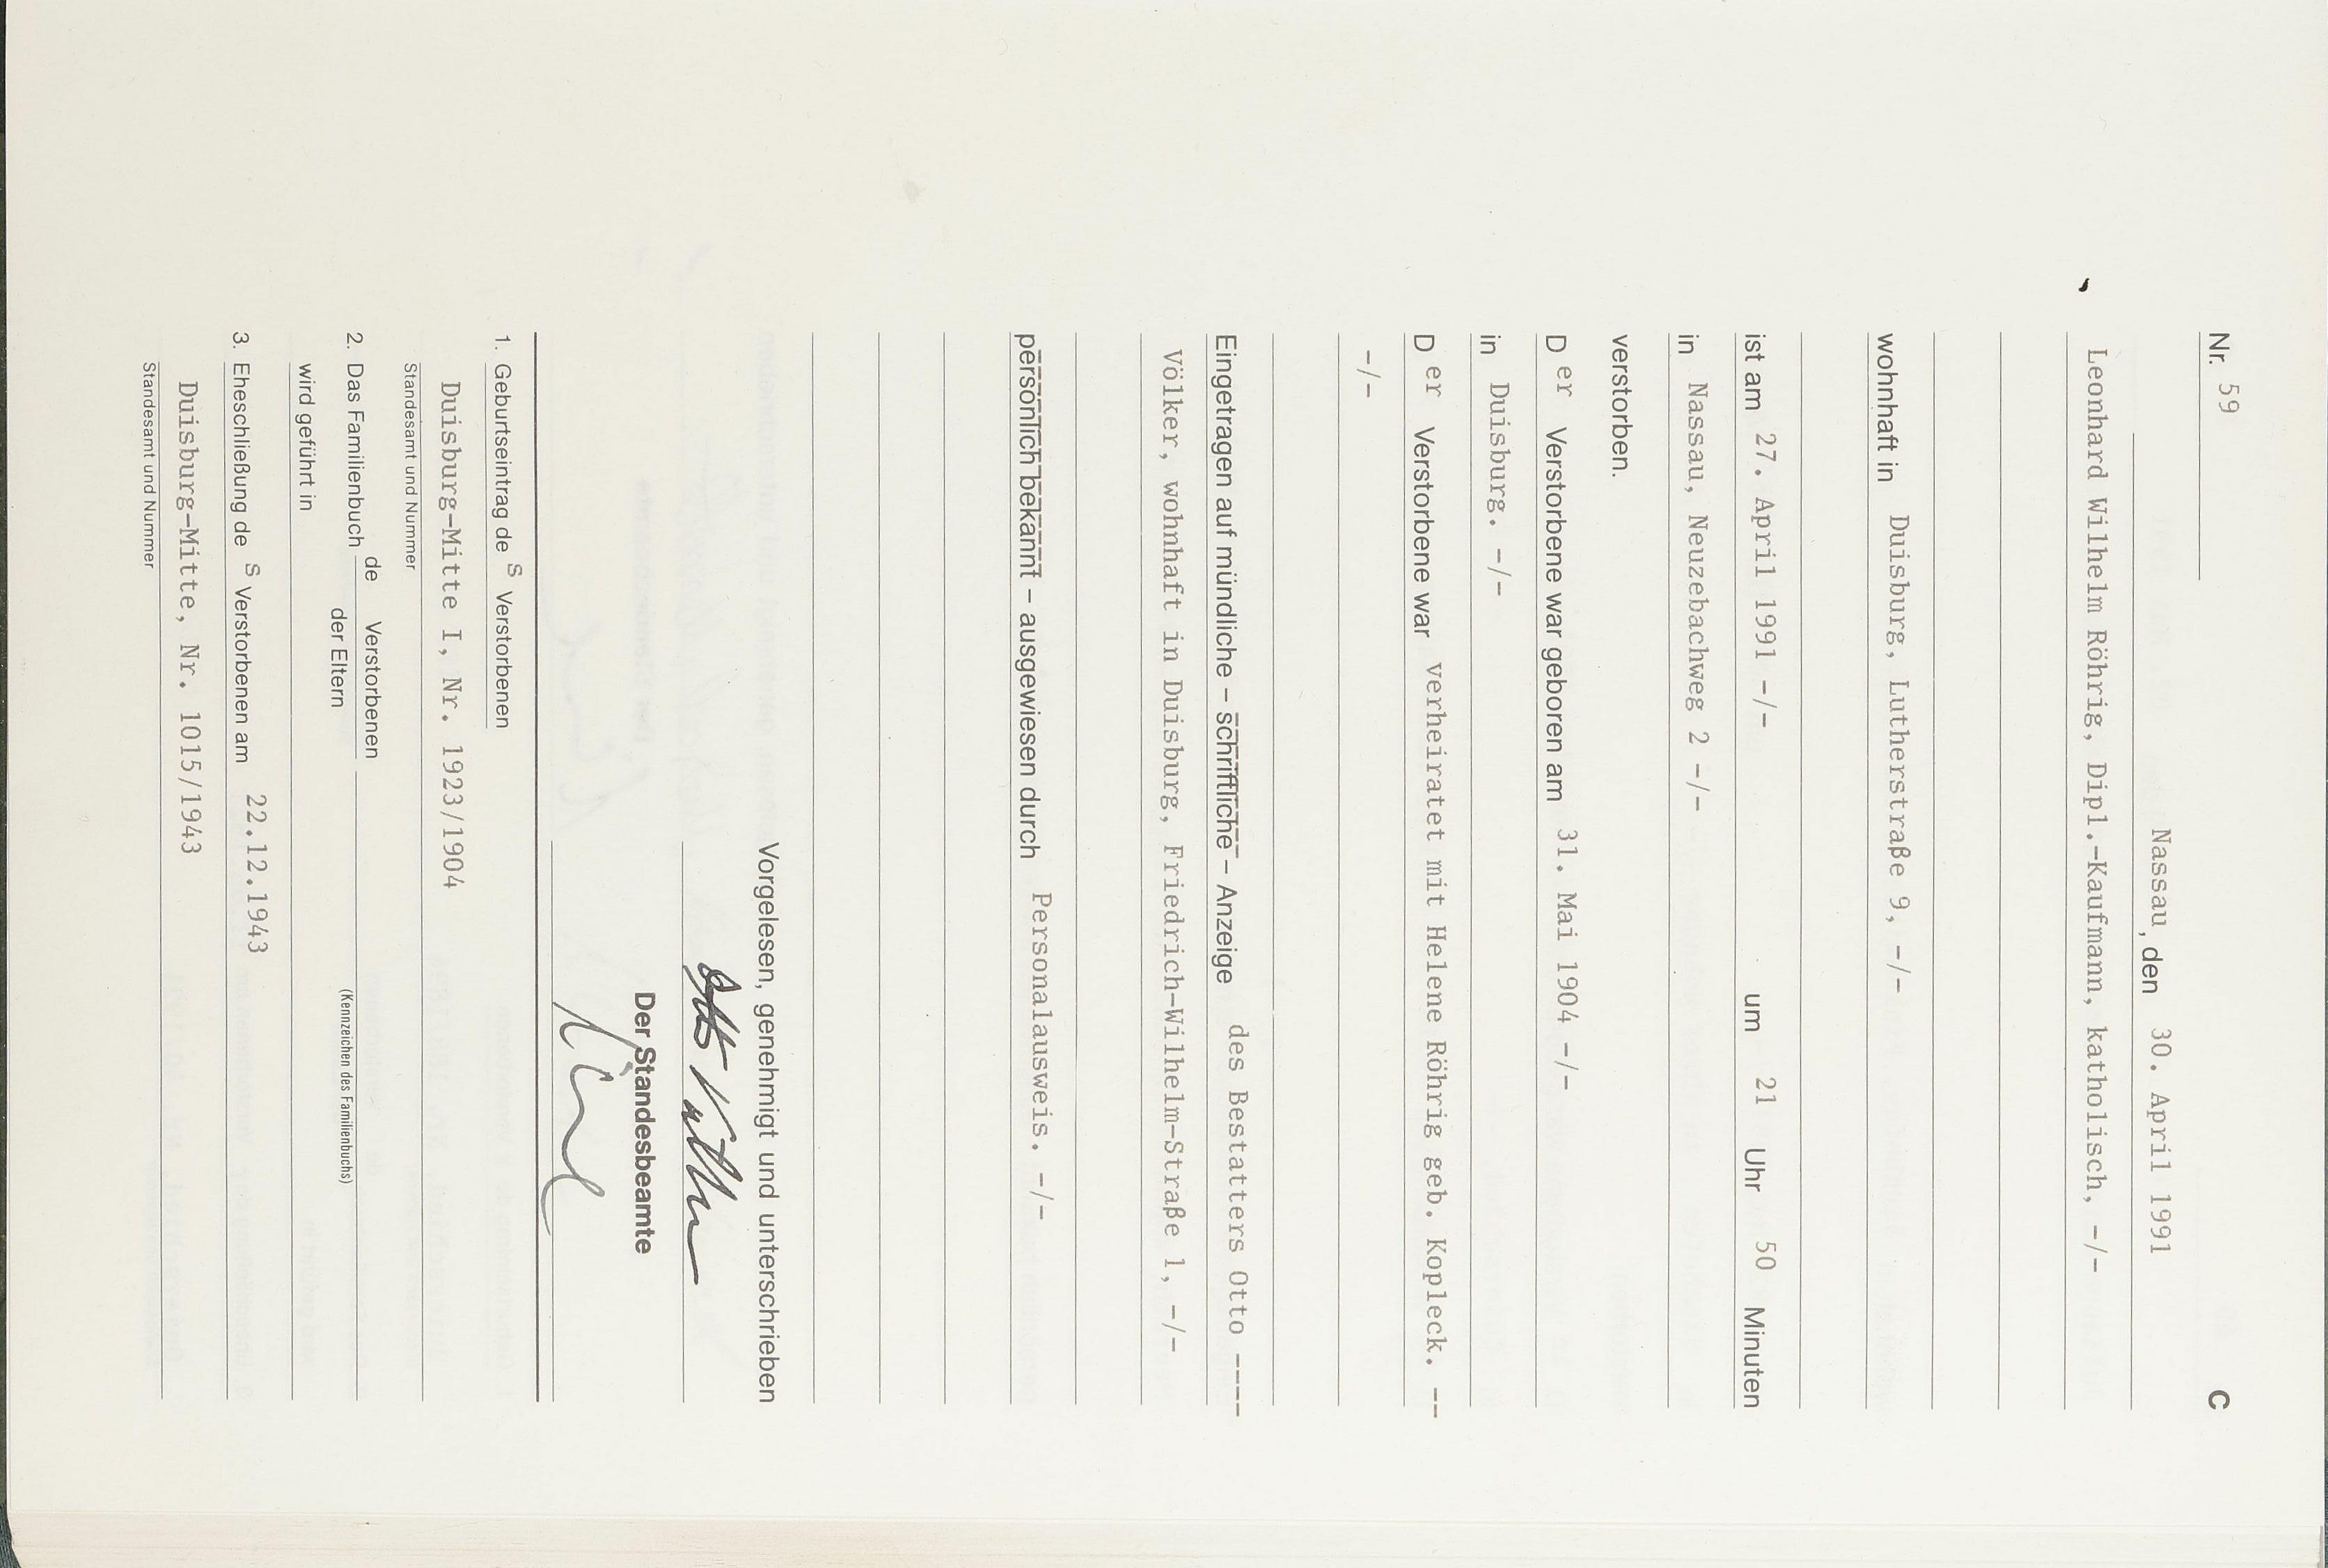 Nr. 59 C
Nassau, den 30. April 1991
Leonhard Wilhelm Röhrig, Dipl.-Kaufmann, katholisch, -/-
wohnhaft in Duisburg, Lutherstraße 9, -/-
ist am 27. April 1991 -/- um 21 Uhr 50 Minuten
in Nassau, Neuzebachweg 2 -/-
verstorben.
D er Verstorbene war geboren am 31. Mai 1904 -/-
in Duisburg. -/-
D er Verstorbene war verheiratet mit Helene Röhrig geb. Kopleck. --
-/-
Eingetragen auf mündliche – schriftliche – Anzeige des Bestatters Otto -----
Völker, wohnhaft in Duisburg, Friedrich-Wilhelm-Straße 1, -/-
persönlich bekannt – ausgewiesen durch Personalausweis. -/-
Vorgelesen, genehmigt und unterschrieben
Otto Völker
Der Standesbeamte
1. Geburtseintrag de s Verstorbenen
Duisburg-Mitte I, Nr. 1923/1904
Standesamt und Nummer
2. Das Familienbuch de Verstorbenen
der Eltern
(Kennzeichen des Familienbuchs)
wird geführt in
3. Eheschließung de s Verstorbenen am 22.12.1943
Duisburg-Mitte, Nr. 1015/1943
Standesamt und Nummer